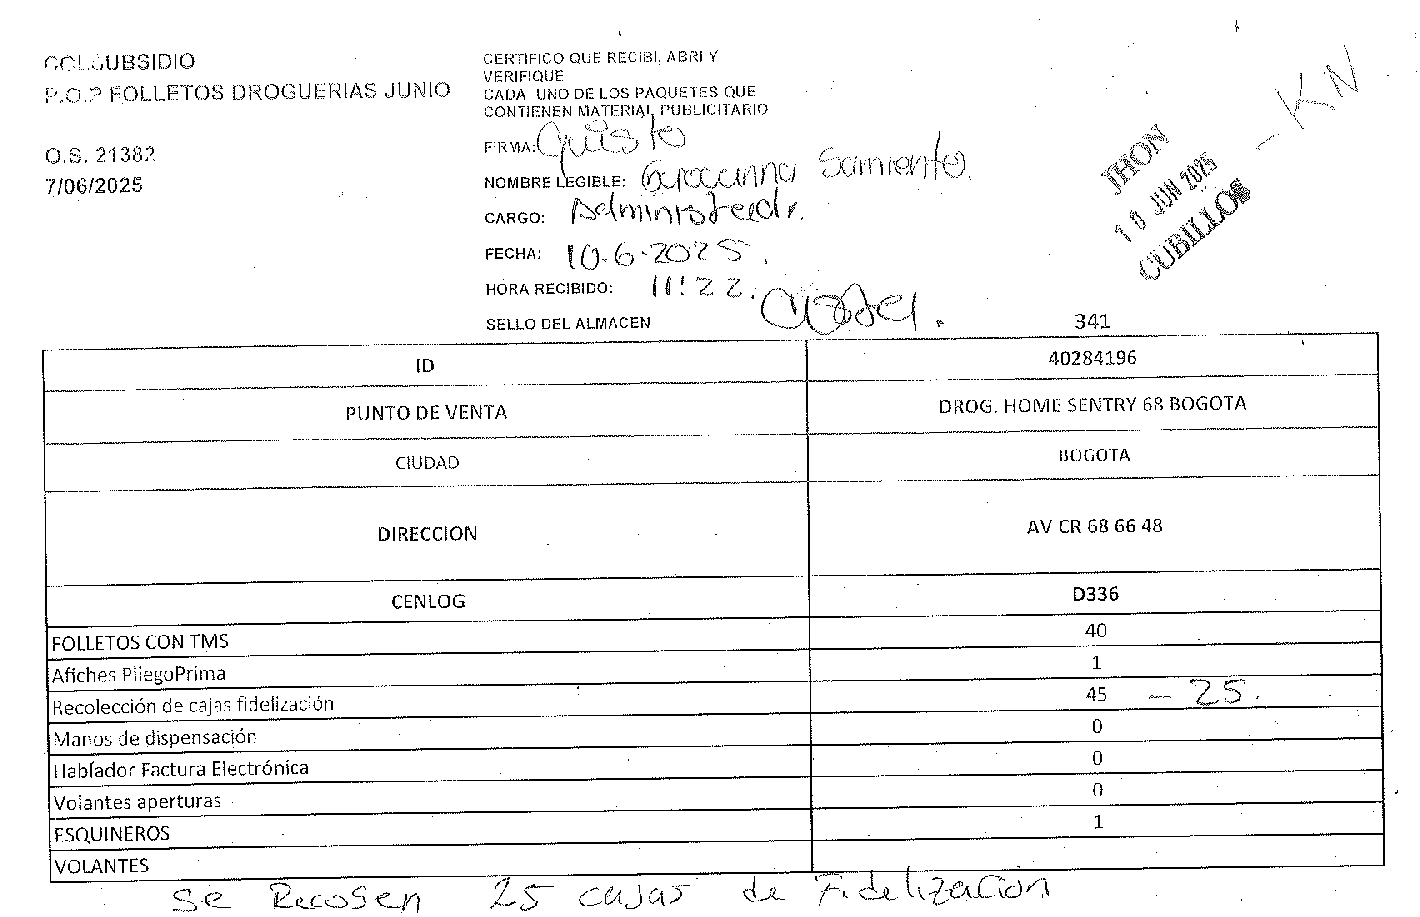 COLSUBSIDIO
P.O.P FOLLETOS DROGUERIAS JUNIO
O.S. 21382
7/06/2025
CERTIFICO QUE RECIBI, ABRI Y
VERIFIQUE
CADA UNO DE LOS PAQUETES QUE
CONTIENEN MATERIAL PUBLICITARIO
FIRMA:
NOMBRE LEGIBLE: Giovanna Sarmiento.
CARGO: Administrador.
FECHA: 10-6-2025.
HORA RECIBIDO: 11:22.
SELLO DEL ALMACEN
JHON
10 JUN 2025
CUBILLOS
- KN
341
ID 40284196
PUNTO DE VENTA DROG. HOME SENTRY 68 BOGOTA
CIUDAD BOGOTA
DIRECCION AV CR 68 66 48
CENLOG D336
FOLLETOS CON TMS 40
Afiches PliegoPrima 1
Recolección de cajas fidelización 45 - 25.
Manos de dispensación 0
Hablador Factura Electrónica 0
Volantes aperturas 0
ESQUINEROS 1
VOLANTES
Se Recogen 25 cajas de Fidelizacion